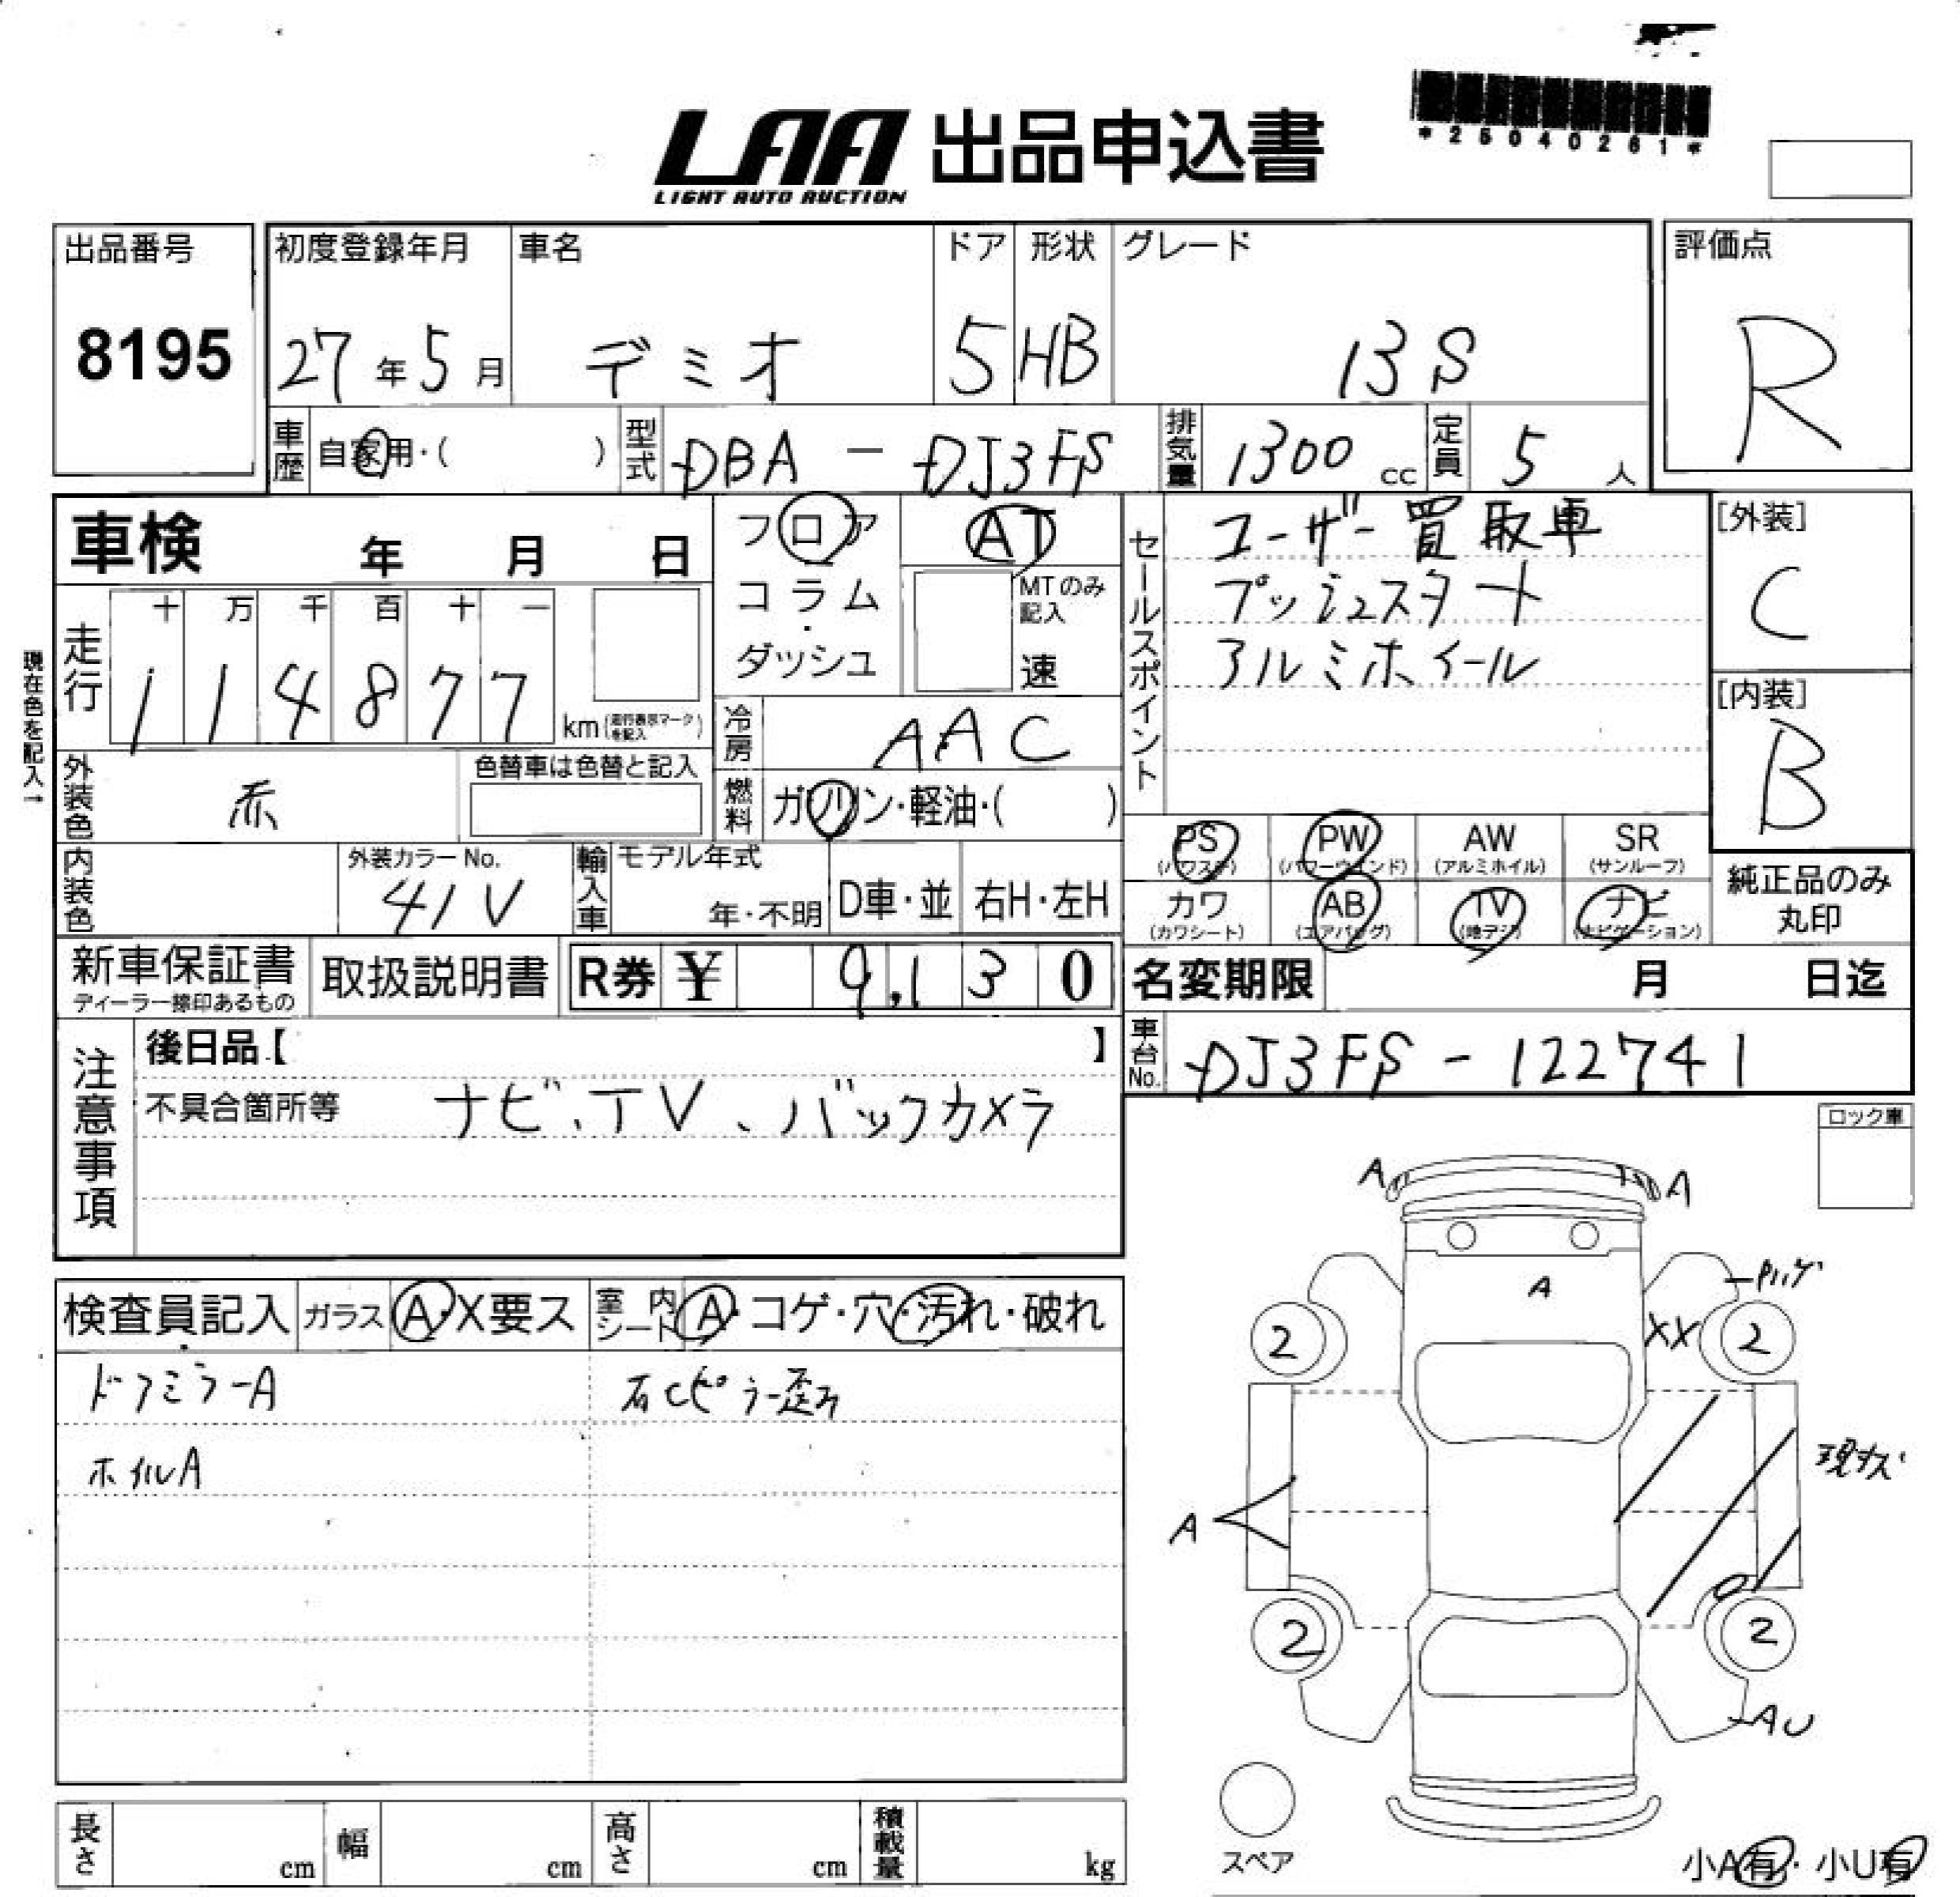 LAA 出品申込書
LIGHT AUTO AUCTION
*25040261*
出品番号
8195
初度登録年月
27年5月
車名
デミオ
ドア
5
形状
HB
グレード
13S
評価点
R
車歴
自家用・( )
型式
DBA - DJ3FS
排気量
1300 cc
定員
5 人
車検 年 月 日
フロア
コラム
・
ダッシュ
AT
MTのみ
記入
速
セールスポイント
ユーザー買取車
プッシュスタート
アルミホイール
[外装]
C
[内装]
B
現在色を記入→
走行
十 万 千 百 十 一
1 1 4 8 7 7
km(走行表示マークを記入)
冷房
AAC
燃料
ガソリン・軽油・( )
外装色
赤
色替車は色替と記入
内装色
外装カラーNo.
41V
輸入車
モデル年式
年・不明
D車・並
右H・左H
PS
(パワステ)
PW
(パワーウィンド)
AW
(アルミホイル)
SR
(サンルーフ)
カワ
(カワシート)
AB
(エアバッグ)
TV
(地デジ)
ナビ
(ナビゲーション)
純正品のみ
丸印
新車保証書
ディーラー捺印あるもの
取扱説明書
R券 ¥ 9,130
名変期限 月 日迄
車台No.
DJ3FS - 122741
注意事項
後日品【 】
不具合箇所等 ナビ、TV、バックカメラ
ロック車
検査員記入
ガラス A・X要ス
室内シート A・コゲ・穴・汚れ・破れ
ドアミラーA
右Cピラー歪み
ホイルA
A
A
A
XX
2
2
現状
A
2
2
AU
スペア
小A有・小U有
長さ cm
幅 cm
高さ cm
積載量 kg